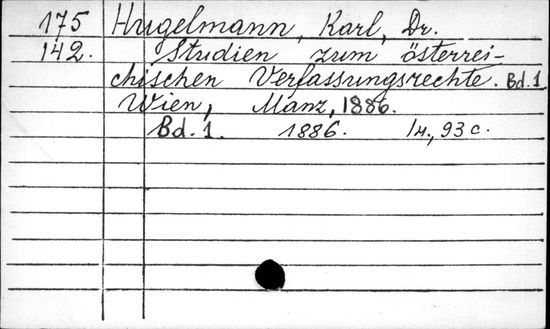 175 Hugelmann, Karl, Dr.
142. Studien zum österrei-
chischen Verfassungsrechte. Bd.1
Wien, Manz, 1886.
Bd. 1. 1886. 14., 93 c.